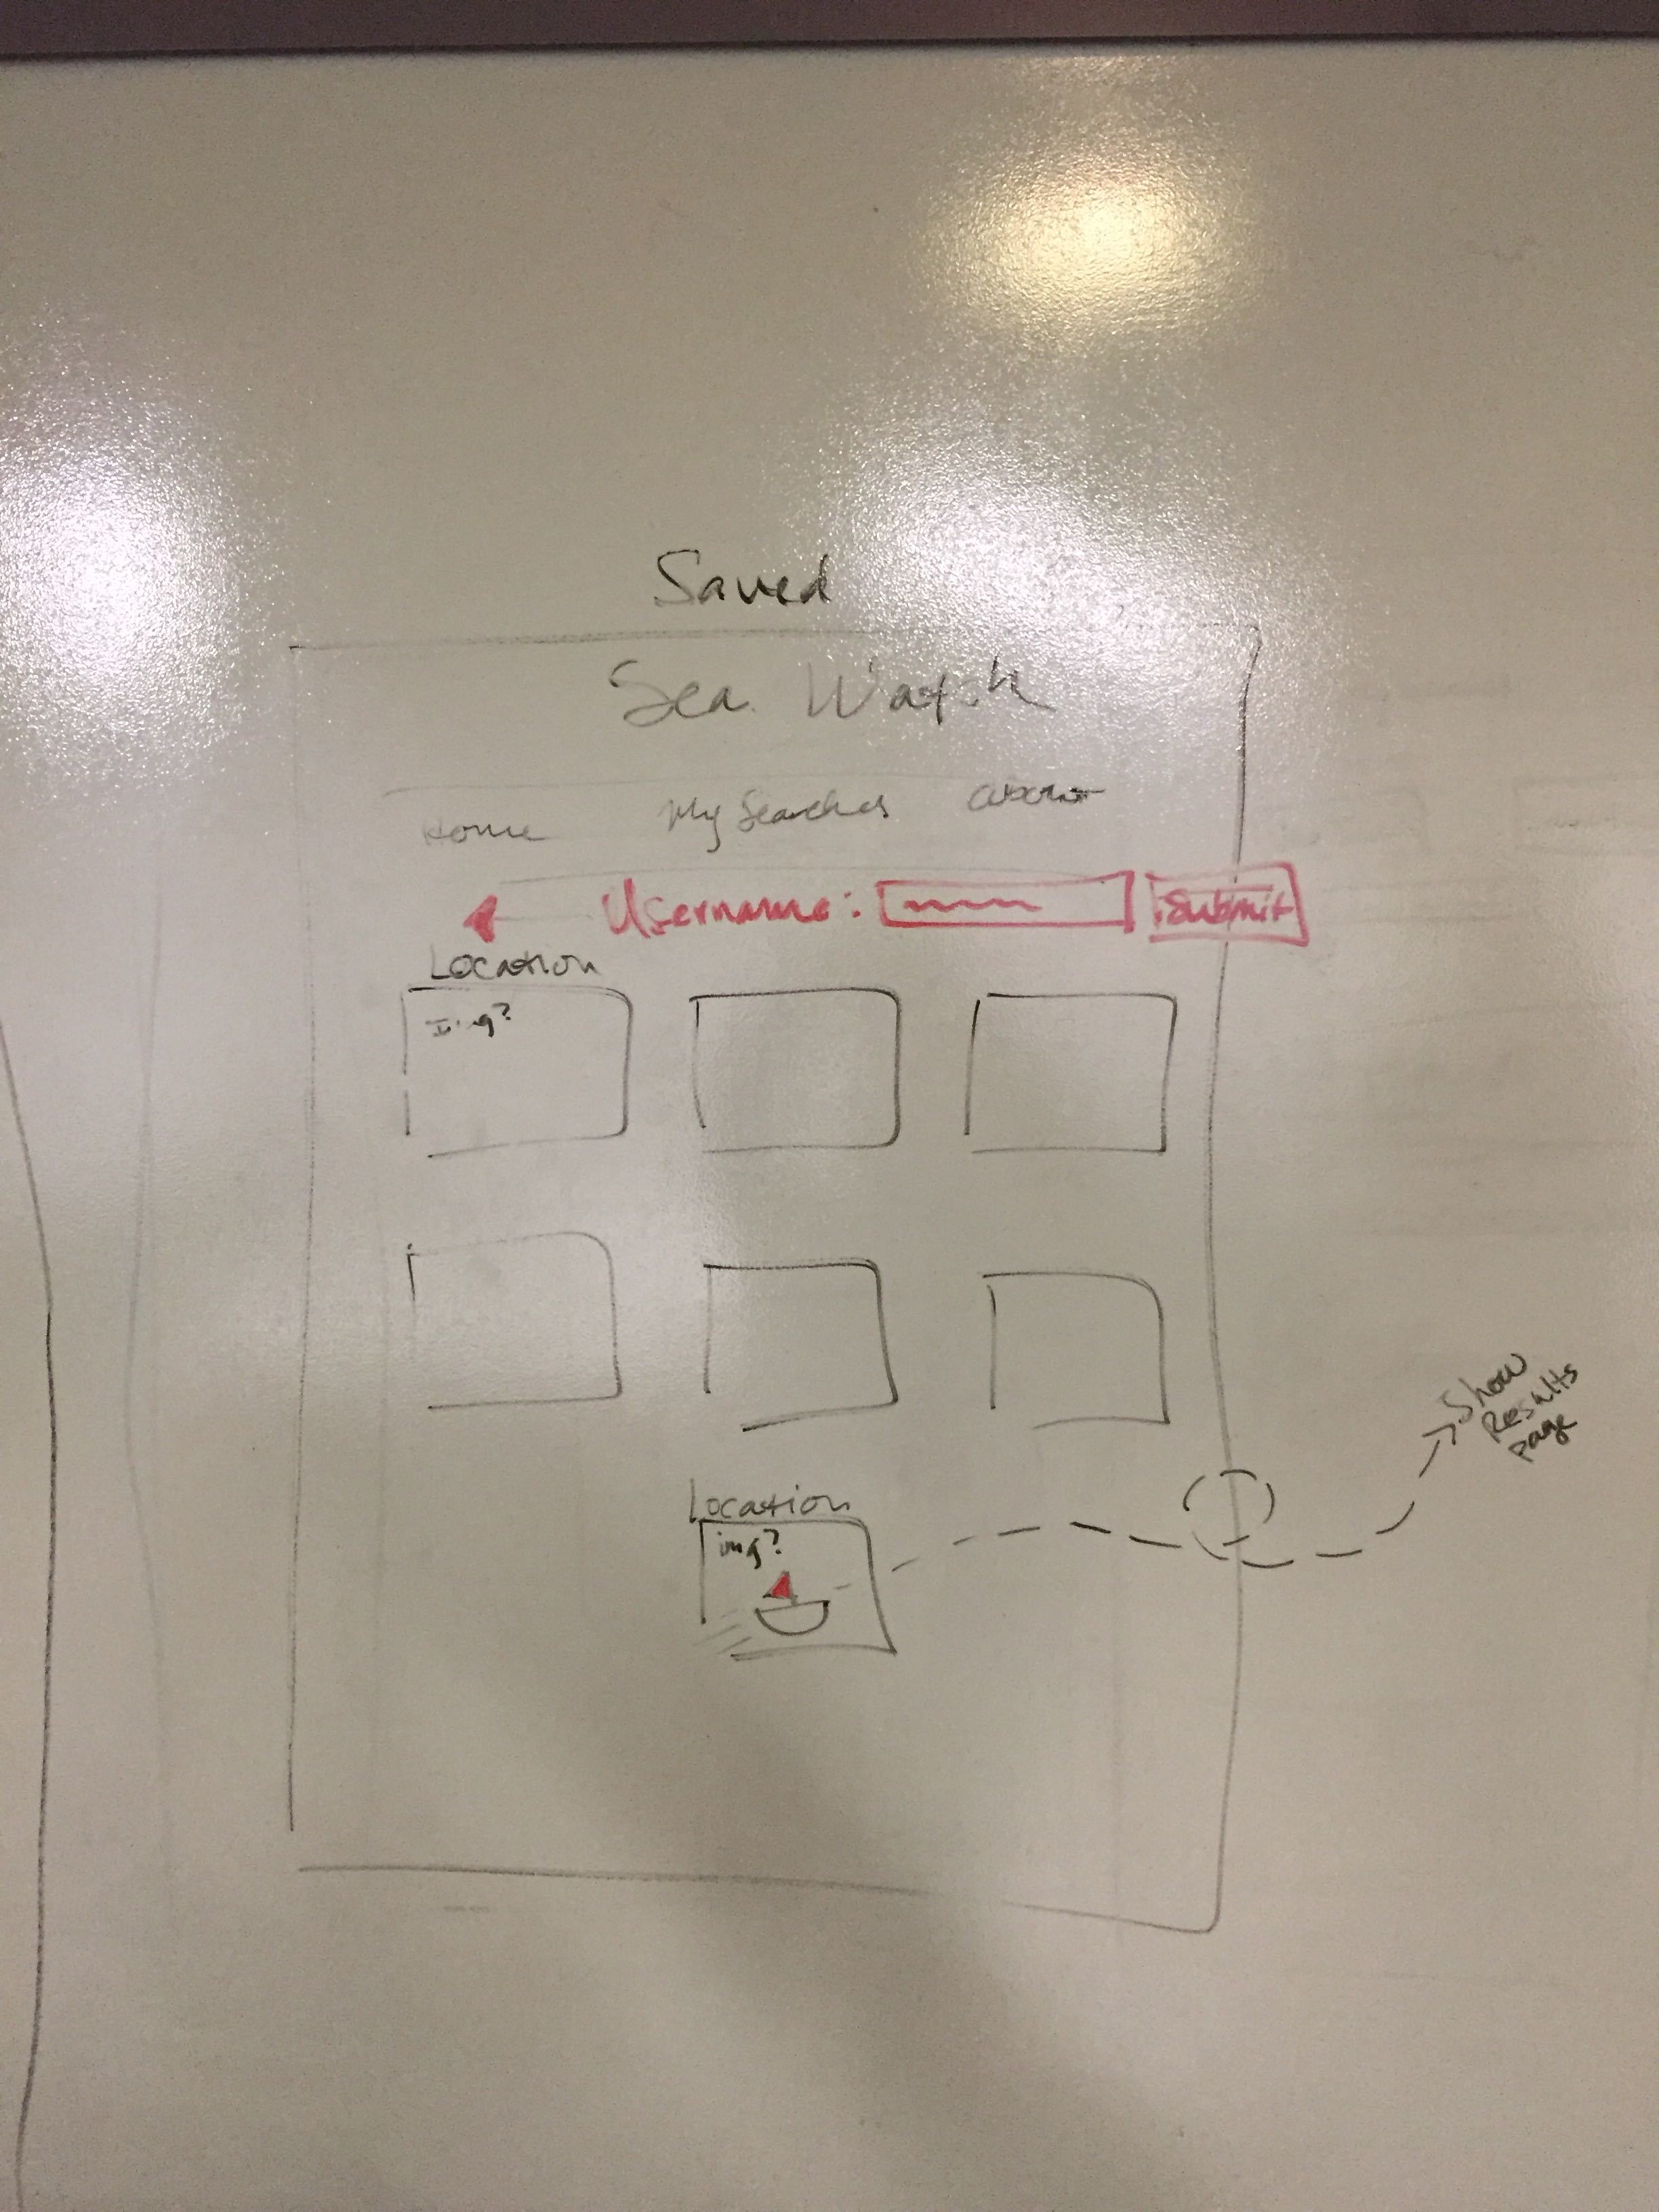 Saved
Sea Watch
Home My Searches About
Username: Submit
Location
Img?
Location
img?
Show
Results
page